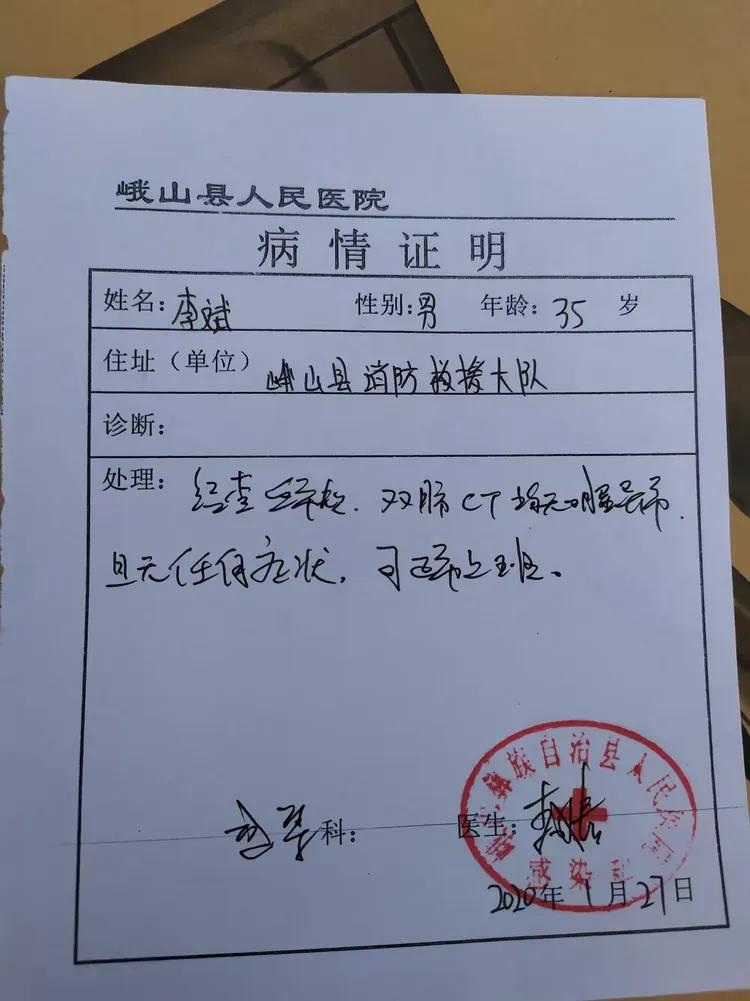 峨山县人民医院
病情证明
姓名: 李斌 性别: 男 年龄: 35 岁
住址（单位） 峨山县消防救援大队
诊断:
处理: 经查 双肺CT均无明显异常.
且无任何症状, 可正常上班。
科: 医生:
彝族自治县人民医院
感染
2020年1月27日